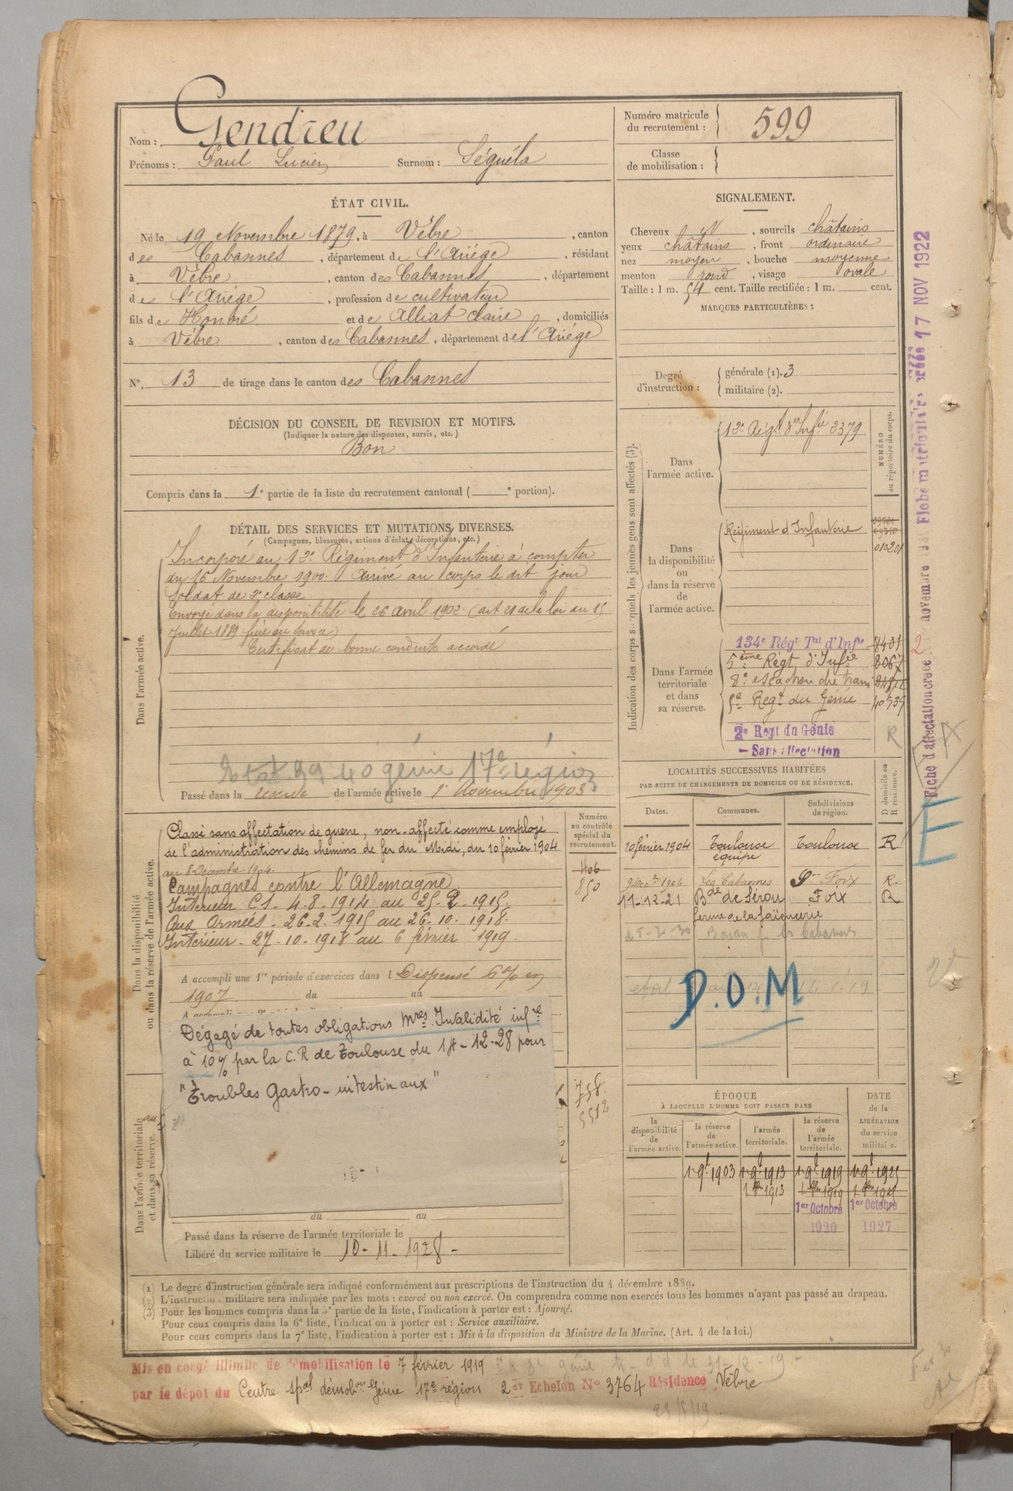 Nom : Gendreu
Prénoms : Paul Lucien Surnom : Séguéla
Numéro matricule du recrutement : 599
Classe de mobilisation :
ÉTAT CIVIL.
Né le 19 Novembre 1879, à Vèbre, canton
des Cabannes, département de l'Ariége, résidant
à Vèbre, canton des Cabannes, département
de l'Ariége, profession de cultivateur
fils de Honoré et de Alliat Claire, domiciliés
à Vèbre, canton des Cabannes, département de l'Ariége
N° 13 de tirage dans le canton des Cabannes
SIGNALEMENT.
Cheveux, sourcils châtains
yeux châtains, front ordinaire
nez moyen, bouche moyenne
menton rond, visage ovale
Taille : 1 m. 54 cent. Taille rectifiée : 1 m. cent.
MARQUES PARTICULIÈRES :
Degré d'instruction : générale (1). 3
militaire (2).
DÉCISION DU CONSEIL DE REVISION ET MOTIFS.
(Indiquer la nature des dispenses, sursis, etc.)
Bon
Compris dans la 1e partie de la liste du recrutement cantonal ( e portion).
DÉTAIL DES SERVICES ET MUTATIONS DIVERSES.
(Campagnes, blessures, actions d'éclat, décorations, etc.)
Dans l'armée active.
Incorporé au 12e Régiment d'Infanterie à compter
du 16 Novembre 1900. Arrivé au corps le dit jour
Soldat de 2e classe
Envoyé dans la disponibilité le 26 avril 1902 (art de la loi du 15
Juillet 1889
Certificat de bonne conduite accordé
génie 17e région
Passé dans la réserve de l'armée active le 1er Novembre 1903
Indication des corps auxquels les jeunes gens sont affectés (3).
NUMÉRO au répertoire du corps.
Dans l'armée active.
12e Régt d'Infie 2379
Dans la disponibilité ou dans la réserve de l'armée active.
Régiment d'Infanterie
Dans l'armée territoriale et dans sa réserve.
134e Régt Tal d'Infie
5ème Régt d'Infie
5e Regt du Génie
2e Regt du Génie
- Sans affectation
LOCALITÉS SUCCESSIVES HABITÉES
PAR SUITE DE CHANGEMENTS DE DOMICILE OU DE RÉSIDENCE.
Dates. Communes. Subdivisions de région. D domicile ou R résidence.
10 février 1904 Toulouse Toulouse R
équipe
Les Cabannes Foix R.
11-12-21 Bde de Sérou Foix R
D.O.M
Dans la disponibilité ou dans la réserve de l'armée active.
Numéro au contrôle spécial du recrutement.
850
Classé sans affectation de guerre, non-affecté comme employé
de l'administration des chemins de fer du Midi, du 10 février 1904
au 8 Décembre 1904.
Campagnes contre l'Allemagne
Intérieur C1. 4-8-1914 au 25-2-1915.
Aux Armées - 26-2-1915 au 26-10-1918.
Intérieur - 27-10-1918 au 6 février 1919.
A accompli une 1re période d'exercices dans l Dispensé
1907 du au
Dégagé de toutes obligations Mres Invalidité infre
à 10% par la C.R de Toulouse du 18-12-28 pour
"Troubles Gastro-intestinaux"
Dans l'armée territoriale et dans sa réserve.
du au
Passé dans la réserve de l'armée territoriale le
Libéré du service militaire le 10-11-1928-
ÉPOQUE
À LAQUELLE L'HOMME DOIT PASSER DANS
la disponibilité de l'armée active. la réserve de l'armée active. l'armée territoriale. la réserve de l'armée territoriale.
DATE de la LIBÉRATION du service militaire.
1er Octobre 1er Octobre
1920 1927
(1) Le degré d'instruction générale sera indiqué conformément aux prescriptions de l'instruction du 4 décembre 1889.
(2) L'instruction militaire sera indiquée par les mots : exercé ou non exercé. On comprendra comme non exercés tous les hommes n'ayant pas passé au drapeau.
(3) Pour les hommes compris dans la 5e partie de la liste, l'indication à porter est : Ajourné.
Pour ceux compris dans la 6e liste, l'indication à porter est : Service auxiliaire.
Pour ceux compris dans la 7e liste, l'indication à porter est : Mis à la disposition du Ministre de la Marine. (Art. 4 de la loi.)
Mis en congé illimité de démobilisation le 7 février 1919
par le dépôt du Centre spal démobon Génie 17e région 2er Echelon N° 3764 Résidence Vèbre
17 NOV 1922